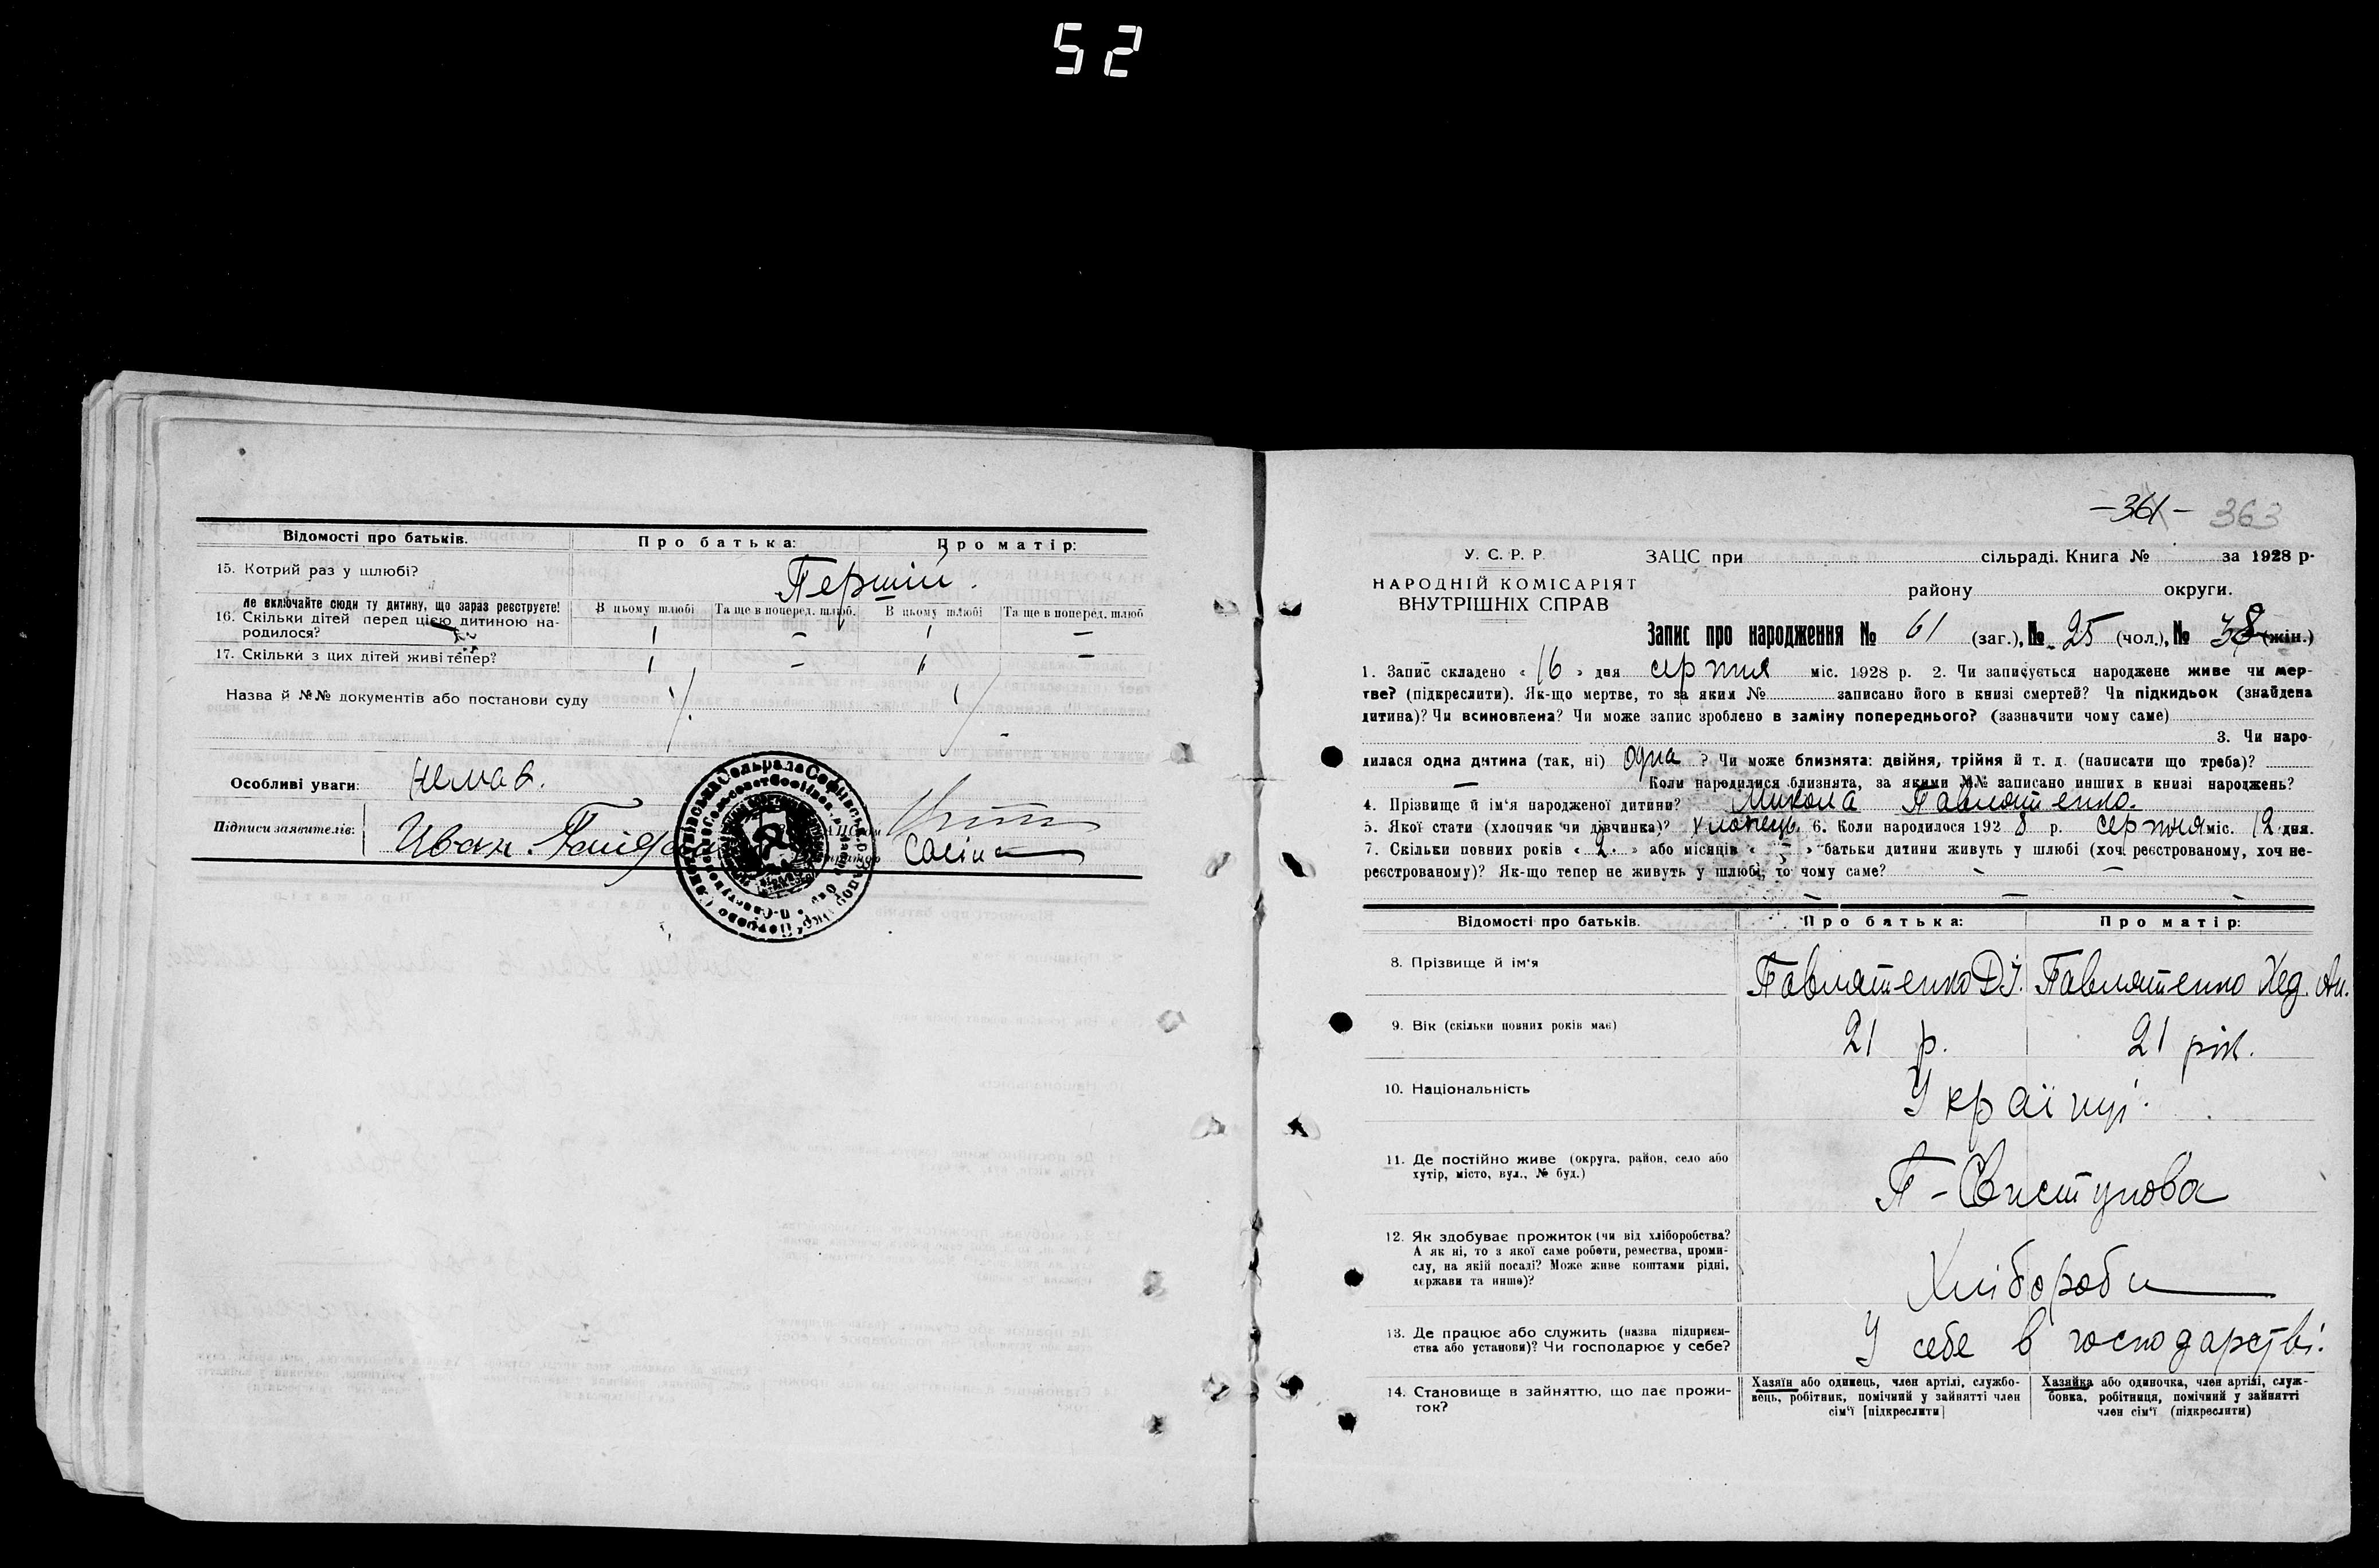 52
Відомості про батьків. Про батька: Про матір:
15. Котрий раз у шлюбі? Першій.
не включайте сюди ту дитину, що зараз реєструєте! В цьому шлюбі Та ще в поперед. шлюб. В цьому шлюбі Та ще в поперед. шлюб
16. Скільки дітей перед цією дитиною на-
родилося? 1 – 1 –
17. Скільки з цих дітей живі тепер? 1 – 1 –
Назва й №№ документів або постанови суду
Особливі уваги: Немає.
Підписи заявителів: Иван
–361– 363
У. С. Р. Р. ЗАЦС при сільраді. Книга № за 1928 р.
НАРОДНІЙ КОМІСАРІЯТ
ВНУТРІШНІХ СПРАВ
району округи.
Запис про народження № 61 (заг.), № 25 (чол.), № 38 (жін.)
1. Запис складено « 16 » дня серпня міс. 1928 р. 2. Чи записується народжене живе чи мер-
тве? (підкреслити). Як-що мертве, то за яким № записано його в книзі смертей? Чи підкидьок (знайдена
дитина)? Чи всиновлена? Чи може запис зроблено в заміну попереднього? (зазначити чому саме)
3. Чи наро-
дилася одна дитина (так, ні) одна ? Чи може близнята: двійня, трійня й т. д. (написати що треба)?
– Коли народилися близнята, за якими №№ записано инших в книзі народжень?
4. Прізвище й ім'я народженої дитини? Микола Павлятенко.
5. Якої статі (хлопчик чи дівчинка)? Хлопець. 6. Коли народилося 1928 р. серпня міс. 12 дня.
7. Скільки повних років « 2 » або місяців « » батьки дитини живуть у шлюбі (хоч реєстрованому, хоч не-
реєстрованому)? Як-що тепер не живуть у шлюбі, то чому саме? – –
Відомості про батьків. Про батька: Про матір:
8. Прізвище й ім'я Павлятенко Д.І. Павлятенко Хед. Ан.
9. Вік (скільки повних років має) 21 р. 21 рік.
10. Національність Українці.
11. Де постійно живе (округа, район, село або
хутір, місто, вул., № буд.) П-Свистунова
12. Як здобуває прожиток (чи від хліборобства?
А як ні, то з якої саме роботи, ремества, проми-
слу, на якій посаді? Може живе коштами рідні,
держави та инше)? Хлібороби
13. Де працює або служить (назва підприєм-
ства або установи)? Чи господарює у себе? У себе в господарстві.
14. Становище в зайняттю, що дає прожи-
ток?
Хазяїн або одинець, член артілі, службо-
вець, робітник, помічний у зайнятті член
сім'ї [підкреслити]
Хазяйка або одиночка, член артілі, служ-
бовка, робітниця, помічний у зайнятті
член сім'ї (підкреслити)